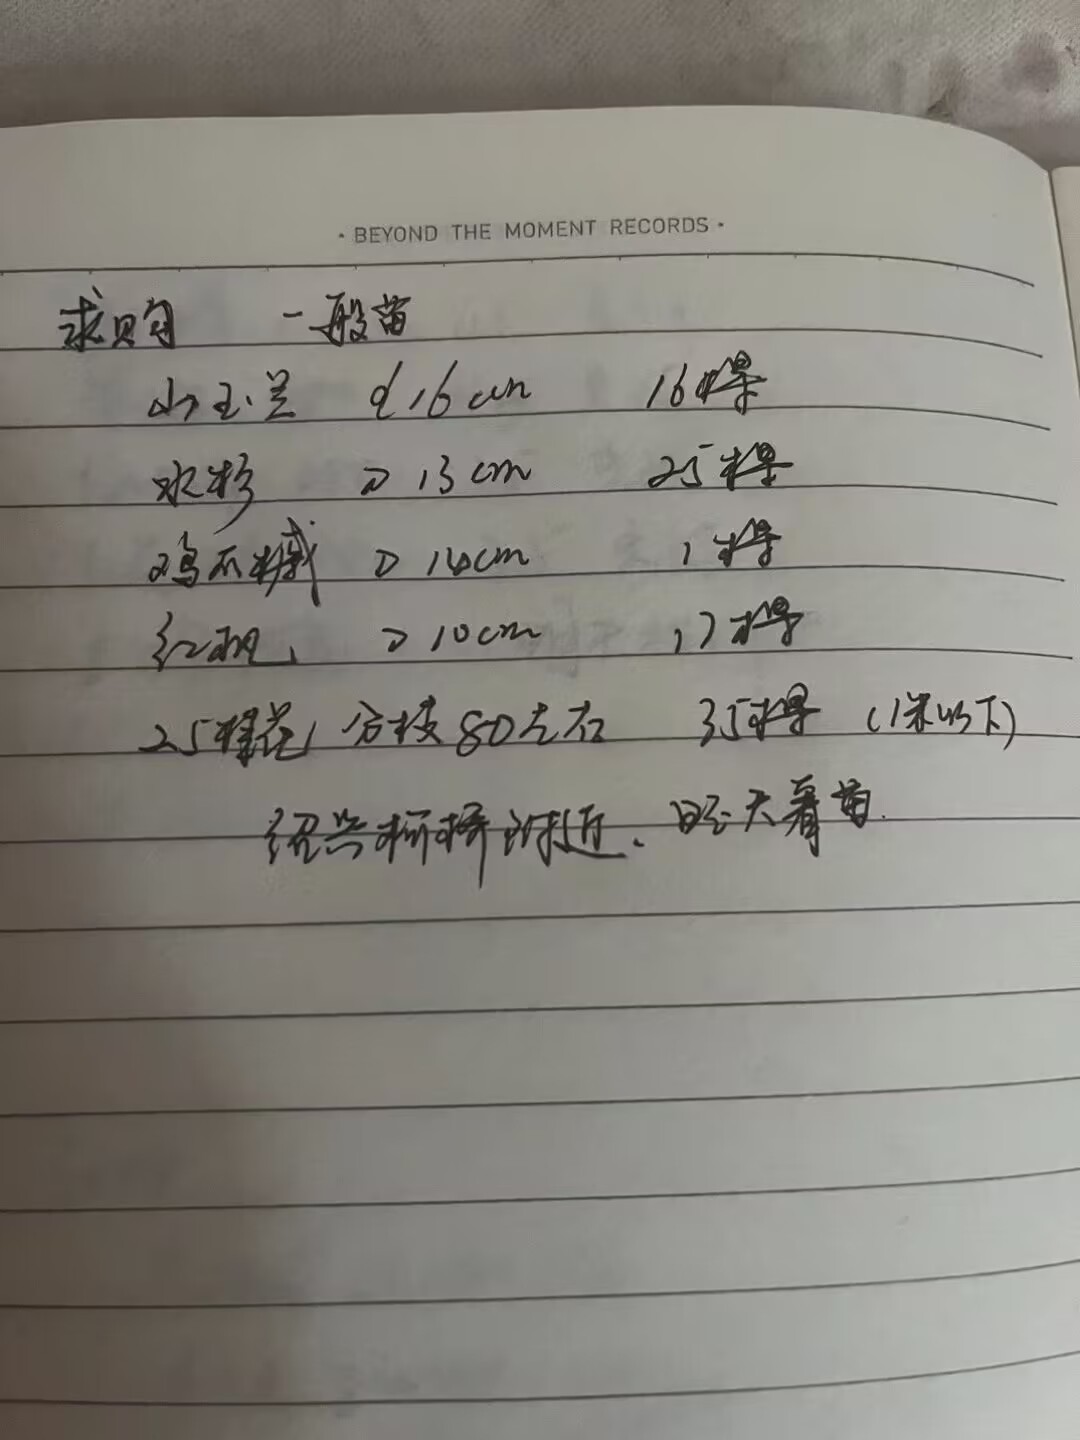 · BEYOND THE MOMENT RECORDS ·
求购 一般苗
山玉兰 d16cm 16棵
水杉 D13cm 25棵
鸡爪槭 D14cm 1棵
红枫 D10cm 17棵
25樱花 分枝80左右 35棵 (1米以下)
绍兴柯桥附近、 天看苗.